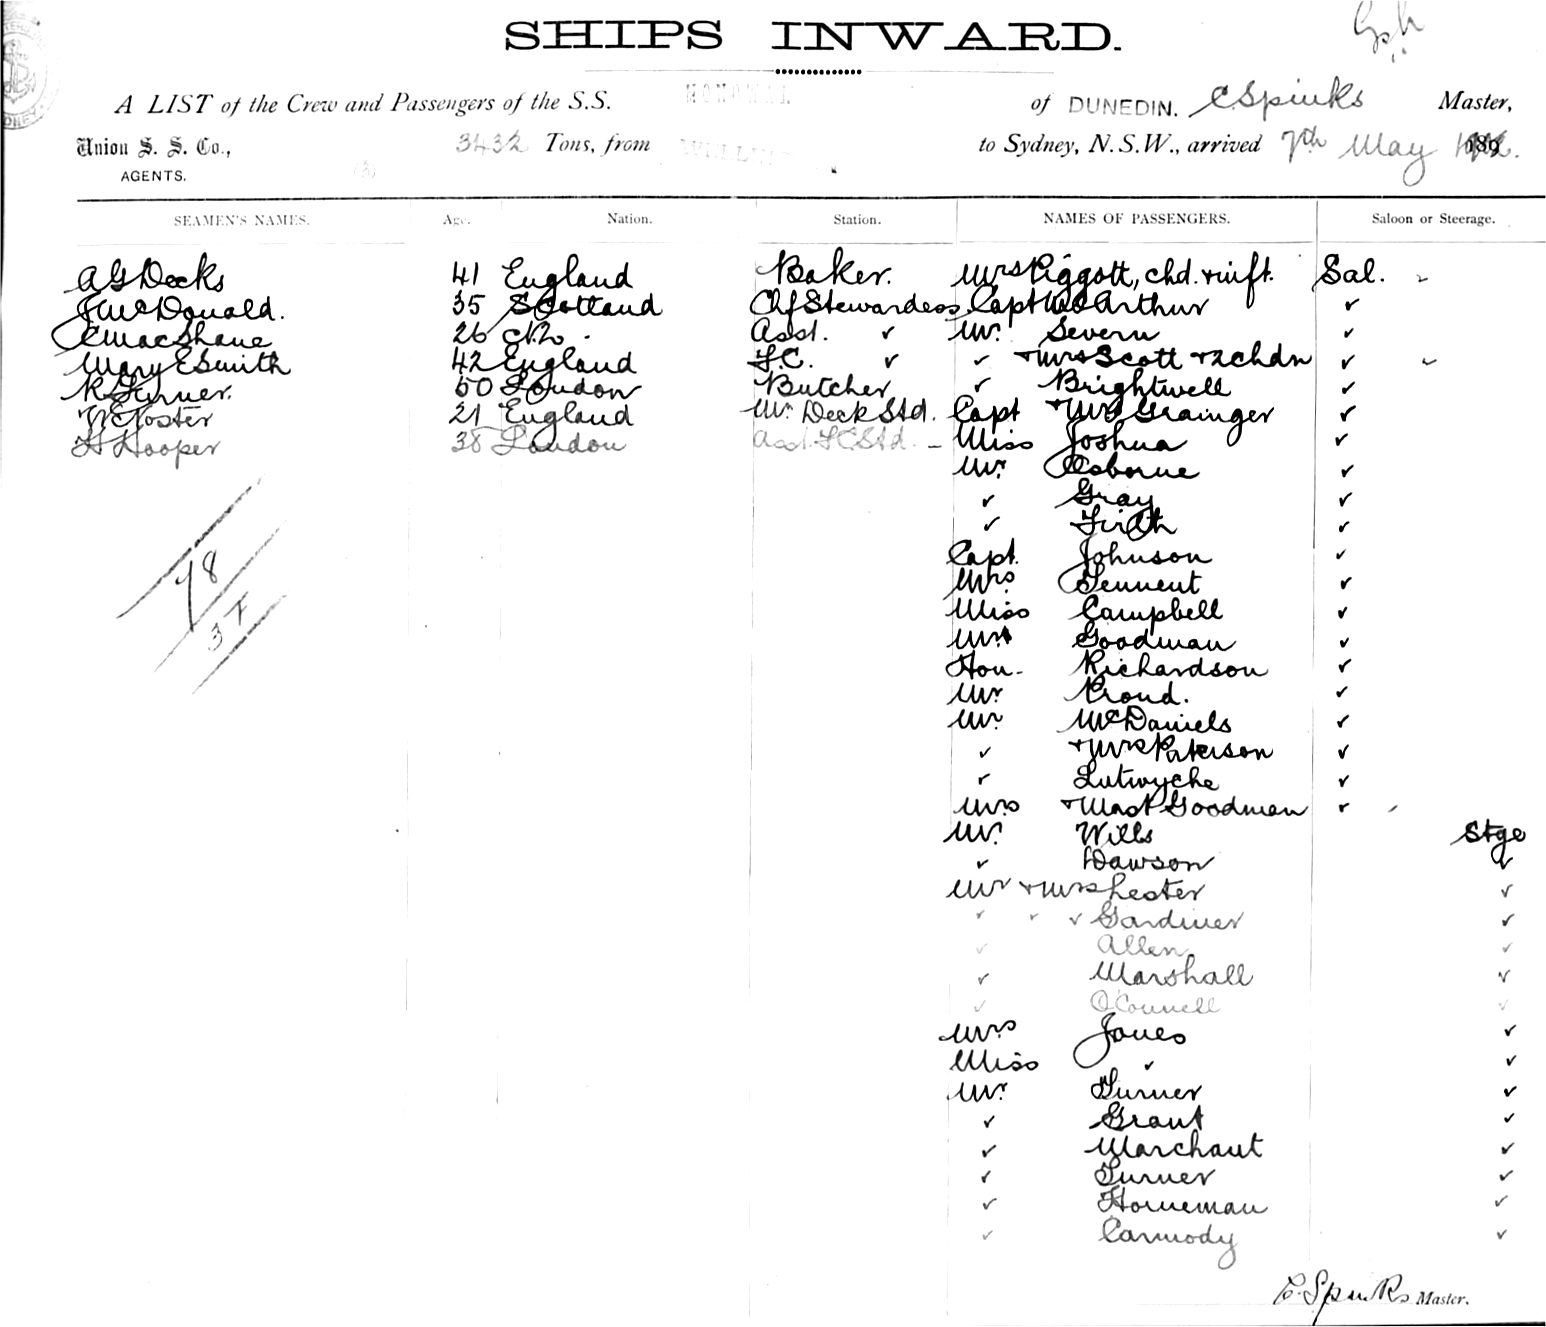 SHIPS INWARD.
A LIST of the Crew and Passengers of the S.S. MONOWAI of DUNEDIN. C Spinks Master,
Union S. S. Co., 3432 Tons, from WELLIN to Sydney, N.S.W., arrived 7th May 189
AGENTS.
SEAMEN'S NAMES. Age. Nation. Station. NAMES OF PASSENGERS. Saloon or Steerage.
A G Decks 41 England Baker. Mrs Piggott, chd. + inft. Sal. "
J McDonald. 35 Scotland Chf Stewardess. Capt McArthur ✓
C MacShane 26 N.Z. Asst. ✓ Mr. Severn ✓
Mary E Smith 42 England F.C. ✓ ✓ + Mrs Scott + 2 chdn ✓ "
R Turner. 50 London Butcher ✓ Brightwell ✓
W E Foster 21 England Mr. Deck Std. Capt + Mrs Grainger ✓
H Hooper 38 London Asst. F.C. Std. - Miss Joshua ✓
Mr. Osborne ✓
✓ Gray ✓
✓ Firth ✓
Capt. Johnson ✓
Mrs Tennent ✓
Miss Campbell ✓
Goodman ✓
Hon. Richardson ✓
Mr Proud. ✓
Mr. McDaniels ✓
✓ + Mrs Paterson ✓
✓ Lutwyche ✓
Mrs + Mast Goodman ✓
Mr. Wills Stge
✓ Dawson ✓
Mr + Mrs Lester ✓
✓ ✓ ✓ Gardiner ✓
✓ Allen ✓
✓ Marshall ✓
✓ O'Connell ✓
Mrs Jones ✓
Miss ✓ ✓
Mr. Turner ✓
✓ Grant ✓
✓ Marchant ✓
✓ Turner ✓
✓ Horneman ✓
✓ Carmody ✓
78
37
C. Spinks Master.